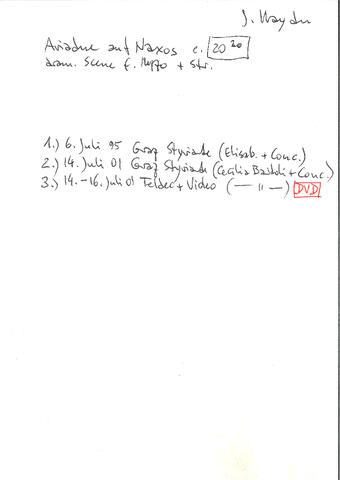 J. Haydn
Ariadne auf Naxos c. 20 20
dram. Scene f. Mezzo + Str.
1.) 6. Juli 95 Graz Styriarte (Elisab. + Conc.)
2.) 14. Juli 01 Graz Styriarte (Cecilia Bartoli + Conc.)
3.) 14.-16. Juli 01 Teldec + Video (— " —) DVD